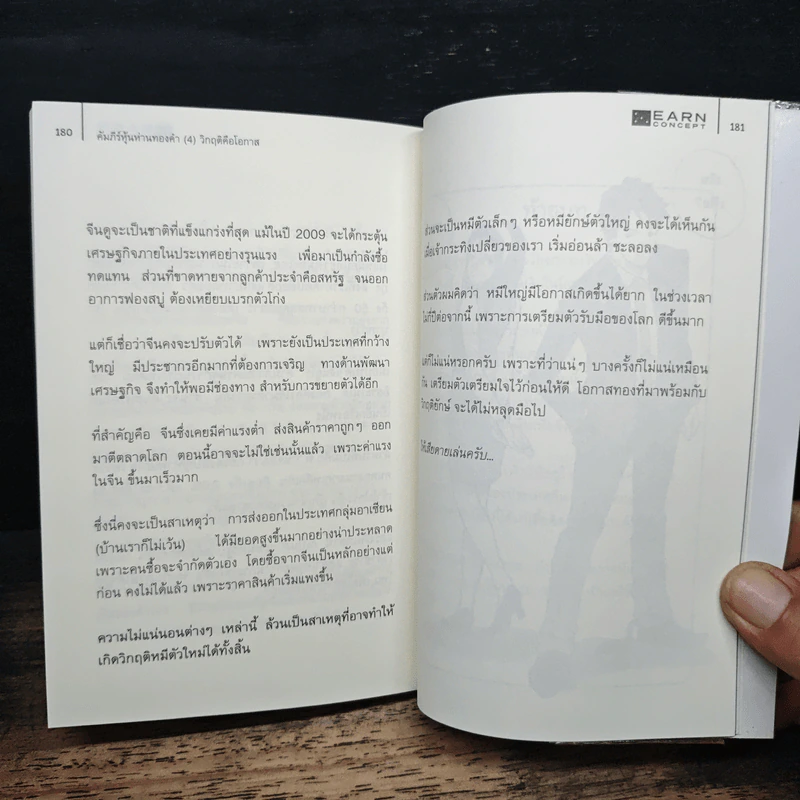 180
คัมภีร์หุ้นห่านทองคำ (4) วิกฤติคือโอกาส
จีนดูจะเป็นชาติที่แข็งแกร่งที่สุด แม้ในปี 2009 จะได้กระตุ้น
เศรษฐกิจภายในประเทศอย่างรุนแรง เพื่อมาเป็นกำลังซื้อ
ทดแทน ส่วนที่ขาดหายจากลูกค้าประจำคือสหรัฐ จนออก
อาการฟองสบู่ ต้องเหยียบเบรกตัวโก่ง
แต่ก็เชื่อว่าจีนคงจะปรับตัวได้ เพราะยังเป็นประเทศที่กว้าง
ใหญ่ มีประชากรอีกมากที่ต้องการเจริญ ทางด้านพัฒนา
เศรษฐกิจ จึงทำให้พอมีช่องทาง สำหรับการขยายตัวได้อีก
ที่สำคัญคือ จีนซึ่งเคยมีค่าแรงต่ำ ส่งสินค้าราคาถูกๆ ออก
มาตีตลาดโลก ตอนนี้อาจจะไม่ใช่เช่นนั้นแล้ว เพราะค่าแรง
ในจีน ขึ้นมาเร็วมาก
ซึ่งนี่คงจะเป็นสาเหตุว่า การส่งออกในประเทศกลุ่มอาเซียน
(บ้านเราก็ไม่เว้น) ได้มียอดสูงขึ้นมากอย่างน่าประหลาด
เพราะคนซื้อจะจำกัดตัวเอง โดยซื้อจากจีนเป็นหลักอย่างแต่
ก่อน คงไม่ได้แล้ว เพราะราคาสินค้าเริ่มแพงขึ้น
ความไม่แน่นอนต่างๆ เหล่านี้ ล้วนเป็นสาเหตุที่อาจทำให้
เกิดวิกฤติหมีตัวใหม่ได้ทั้งสิ้น
EARN
CONCEPT
181
ส่วนจะเป็นหมีตัวเล็กๆ หรือหมียักษ์ตัวใหญ่ คงจะได้เห็นกัน
เมื่อเจ้ากระทิงเปลี่ยวของเรา เริ่มอ่อนล้า ชะลอลง
ส่วนตัวผมคิดว่า หมีใหญ่มีโอกาสเกิดขึ้นได้ยาก ในช่วงเวลา
ไม่กี่ปีต่อจากนี้ เพราะการเตรียมตัวรับมือของโลก ดีขึ้นมาก
แต่ก็ไม่แน่หรอกครับ เพราะที่ว่าแน่ๆ บางครั้งก็ไม่แน่เหมือน
กัน เตรียมตัวเตรียมใจไว้ก่อนให้ดี โอกาสทองที่มาพร้อมกับ
วิกฤติยักษ์ จะได้ไม่หลุดมือไป
ให้เสียดายเล่นครับ...